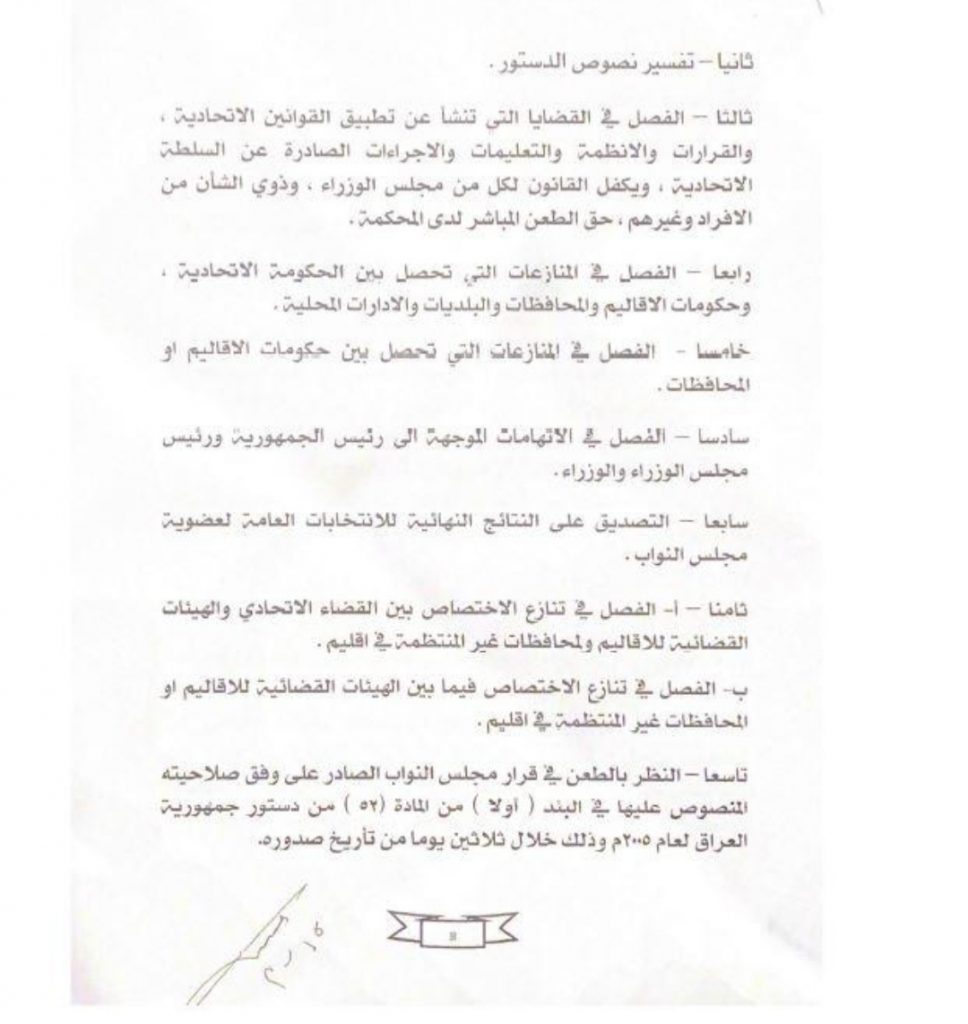 ثانيا – تفسير نصوص الدستور .
ثالثا – الفصل في القضايا التي تنشأ عن تطبيق القوانين الاتحادية ،
والقرارات والانظمة والتعليمات والاجراءات الصادرة عن السلطة
الاتحادية ، ويكفل القانون لكل من مجلس الوزراء ، وذوي الشأن من
الافراد وغيرهم ، حق الطعن المباشر لدى المحكمة .
رابعا – الفصل في المنازعات التي تحصل بين الحكومة الاتحادية ،
وحكومات الاقاليم والمحافظات والبلديات والادارات المحلية .
خامسا - الفصل في المنازعات التي تحصل بين حكومات الاقاليم او
المحافظات .
سادسا – الفصل في الاتهامات الموجهة الى رئيس الجمهورية ورئيس
مجلس الوزراء والوزراء .
سابعا – التصديق على النتائج النهائية للانتخابات العامة لعضوية
مجلس النواب .
ثامنا – أ- الفصل في تنازع الاختصاص بين القضاء الاتحادي والهيئات
القضائية للاقاليم ولمحافظات غير المنتظمة في اقليم .
ب- الفصل في تنازع الاختصاص فيما بين الهيئات القضائية للاقاليم او
المحافظات غير المنتظمة في اقليم .
تاسعا – النظر بالطعن في قرار مجلس النواب الصادر على وفق صلاحيته
المنصوص عليها في البند ( اولا ) من المادة (٥٢ ) من دستور جمهورية
العراق لعام ٢٠٠٥م وذلك خلال ثلاثين يوما من تأريخ صدوره.